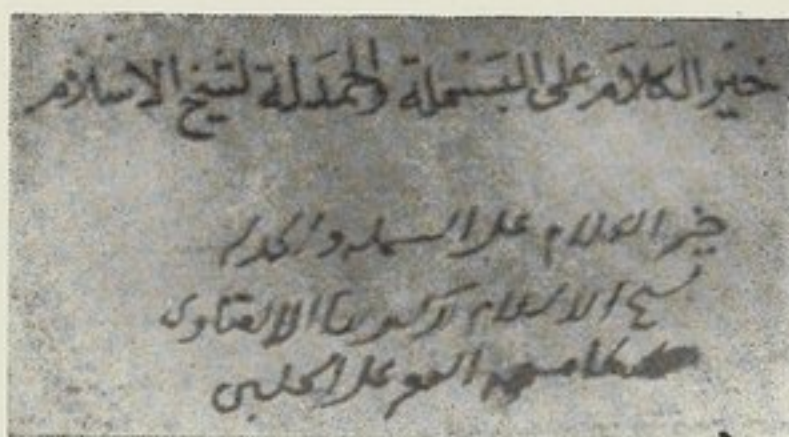 خَيْر الكَلَام على البَسْملة والحَمْدَلة لشيخ الاسلام
خير الكلام على البسمله والحمدله
شيخ الاسلام زكريا الانصارى
الفقير على الحلبى